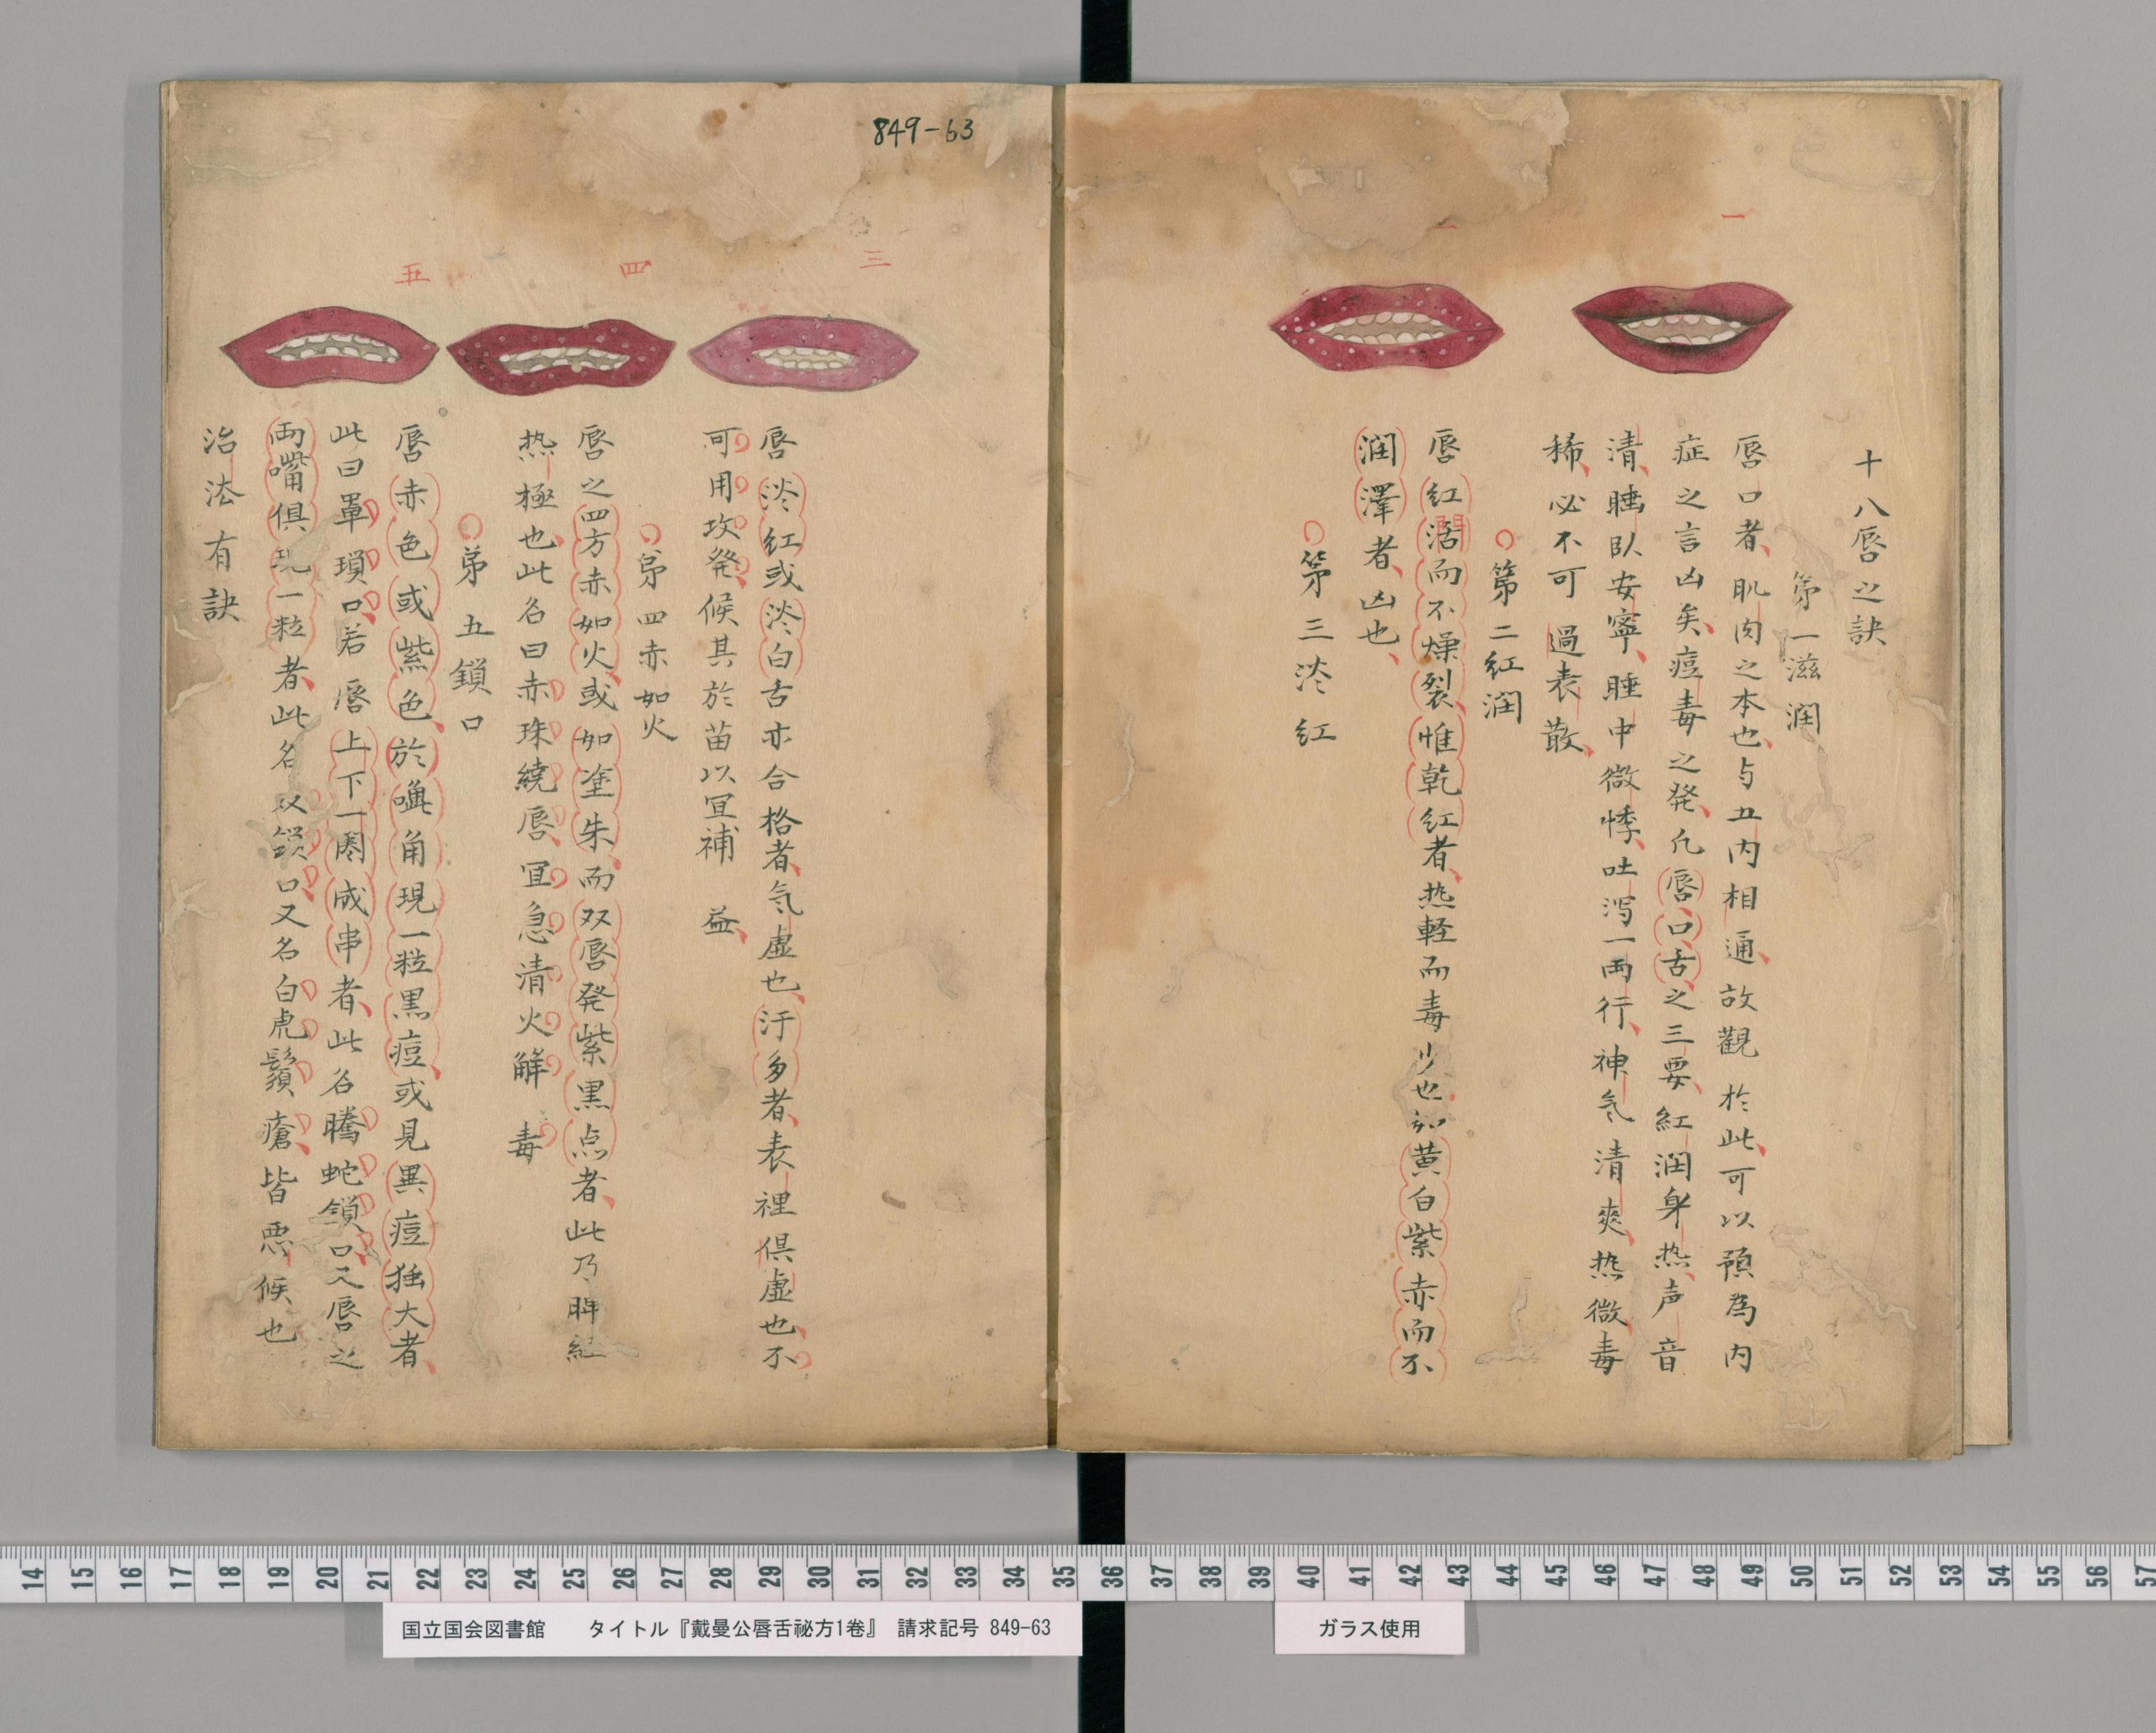 十八唇之訣
第一滋润
一
唇口者肌肉之本也与五内相通故觀於此可以預為内
症之言凶矣痘毒之発凢唇口舌之三要紅潤身热声音
清睡臥安寧睡中微悸吐瀉一両行神気清爽热微毒
稀必不可過表散
○第二紅潤
二
唇紅活而不燥裂惟乾紅者热軽而毒少也如黄白紫赤而不
润澤者凶也
○第三淡紅
849-63
三
唇淡紅或淡白舌亦合格者気虚也汗多者表裡倶虚也不
可用攻発候其於苗以宜補益
○第四赤如火
四
唇之四方赤如火或如塗朱而双唇発紫黒点者此乃脾経
热極也此名曰赤珠繞唇宜急清火解毒
○第五鎖口
五
唇赤色或紫色於嘴角現一粒黒痘或見異痘独大者
此曰單鎖口若唇上下一圏成串者此名騰蛇鎖口又唇之
両嘴倶現一粒者此名双鎖口又名白虎鬚瘡皆悪候也
治法有訣
14 15 16 17 18 19 20 21 22 23 24 25 26 27 28 29 30 31 32 33 34 35 36 37 38 39 40 41 42 43 44 45 46 47 48 49 50 51 52 53 54 55 56 57
国立国会図書館 タイトル『戴曼公唇舌祕方1巻』 請求記号 849-63
ガラス使用